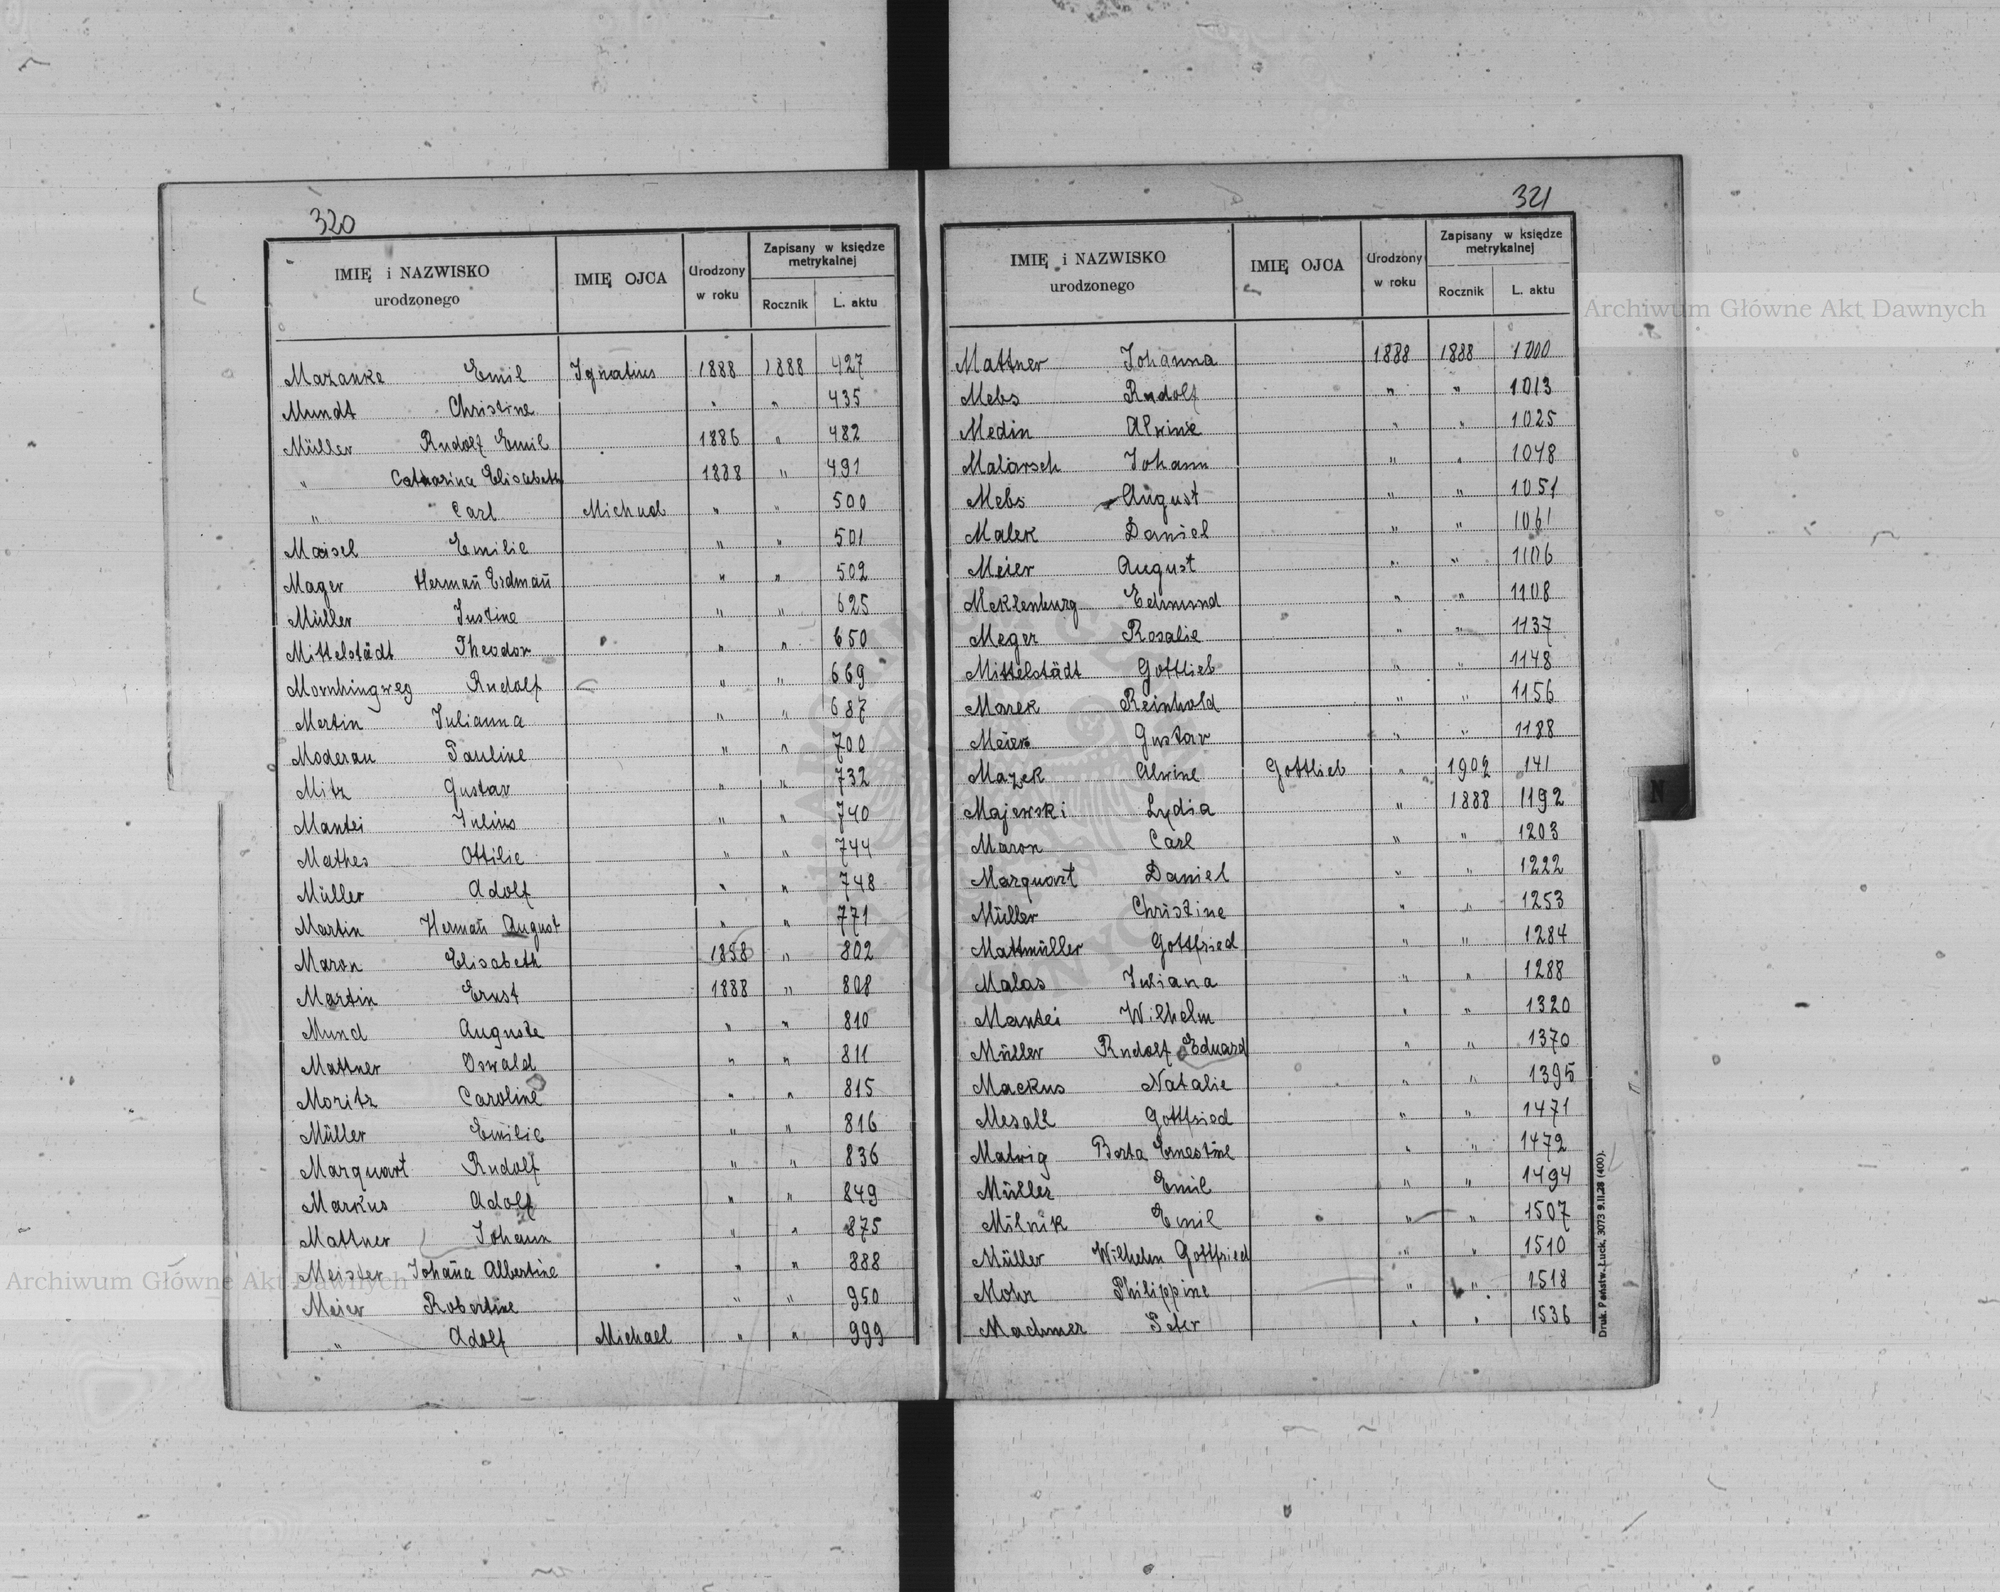 320
IMIĘ i NAZWISKO urodzonego | IMIĘ OJCA | Urodzony w roku | Zapisany w księdze metrykalnej
Rocznik | L. aktu
Mazanke Emil Ignatius 1888 1888 427
Mundt Christine " " 435
Müller Rudolf Emil 1886 " 482
" Catharina Elisabeth 1888 " 491
" Carl Michael " " 500
Maisel Emilie " " 501
Mager Herman̄ Erdman̄ " " 502
Müller Justine " " 625
Mittelstädt Theodor " " 650
Mornhingweg Rudolf " " 669
Mertin Julianna " " 687
Moderau Pauline " " 700
Mitz Gustav " " 732
Mantei Julius " " 740
Mathes Ottilie " " 744
Müller Adolf " " 748
Martin Herman̄ August " " 771
Maron Elisabeth 1888 " 802
Martin Ernst 1888 " 808
Mund Auguste " " 810
Mattner Oswald " " 811
Moritz Caroline " " 815
Müller Emilie " " 816
Marquart Rudolf " " 836
Markus Adolf " " 849
Mattner Johann " " 875
Meister Johan̄a Albertine " " 888
Meier Robertine " " 950
" Adolf Michael " " 999
321
IMIĘ i NAZWISKO urodzonego | IMIĘ OJCA | Urodzony w roku | Zapisany w księdze metrykalnej
Rocznik | L. aktu
Mattner Johanna 1888 1888 1000
Mebs Rudolf " " 1013
Medin Alwine " " 1025
Malarsch Johann " " 1048
Mebs August " " 1051
Malek Daniel " " 1061
Meier August " " 1106
Meklenburg Edmund " " 1108
Meger Rosalie " " 1137
Mittelstädt Gottlieb " " 1148
Marek Reinhold " " 1156
Meier Gustav " " 1188
Mazek Alwine Gottlieb " 1902 141
Majewski Lydia " 1888 1192
Maron Carl " " 1203
Marquart Daniel " " 1222
Müller Christine " " 1253
Mattmüller Gottfried " " 1284
Malas Juliana " " 1288
Mantei Wilhelm " " 1320
Müller Rudolf Eduard " " 1370
Mackus Natalie " " 1395
Mesall Gottfried " " 1471
Matwig Berta Ernestine " " 1472
Müller Emil " " 1494
Milnik Emil " " 1507
Müller Wilhelm Gottfried " " 1510
Mohr Philippine " " 1518
Machmer Peter " " 1536
Druk. Państw. Łuck, 3073 9.II.28 (400).
N
Archiwum Główne Akt Dawnych
Archiwum Główne Akt Dawnych